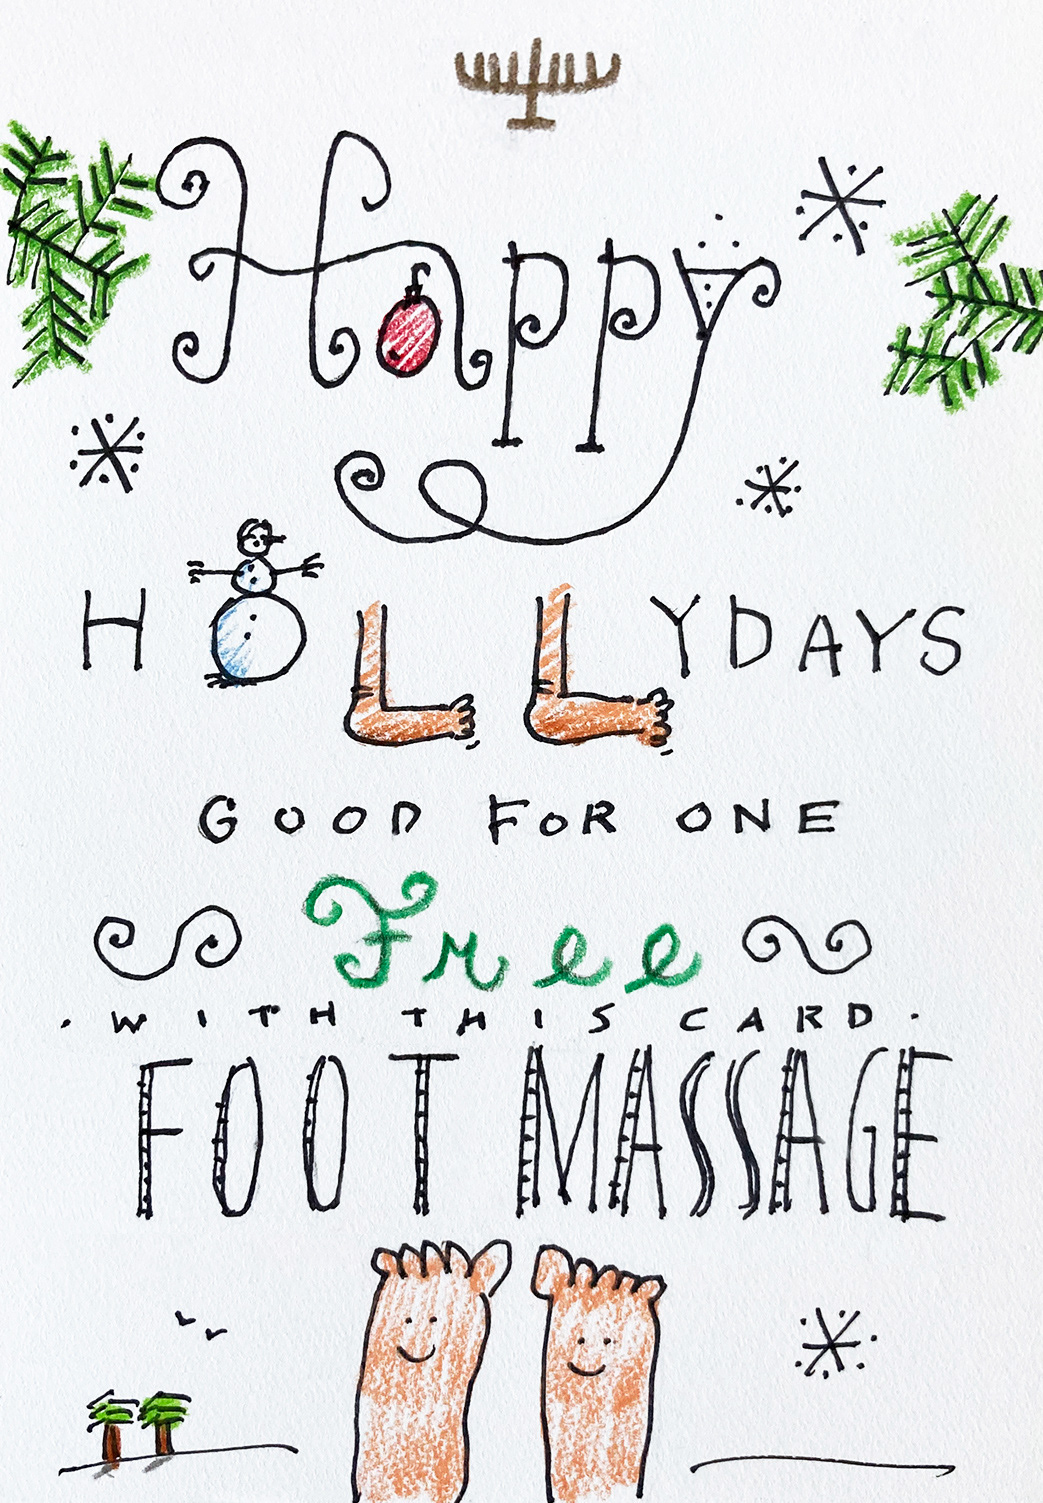 Happy
HOLLYDAYS
GOOD FOR ONE
Free
· WITH THIS CARD ·
FOOT MASSAGE